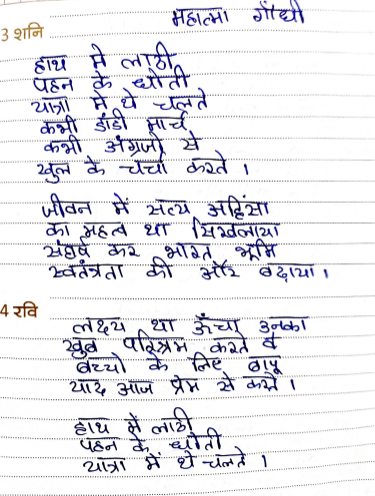 महात्मा गाँधी
3 शनि
हाथ में लाठी
पहन के धोती
यात्रा में थे चलते
कभी डांडी मार्च
कभी अंग्रजो से
खुल के चर्चा करते ।
जीवन में सत्य अहिंसा
का महत्व था सिखलाया
संघर्ष कर भारत भूमि
स्वतंत्रता की और बढ़ाया ।
4 रवि
लक्ष्य था ऊँचा उनका
खुब परिश्रम करते वे
बच्चो के लिए बापू
याद आज प्रेम से करो ।
हाथ में लाठी
पहन के धोती
यात्रा में थे चलते ।